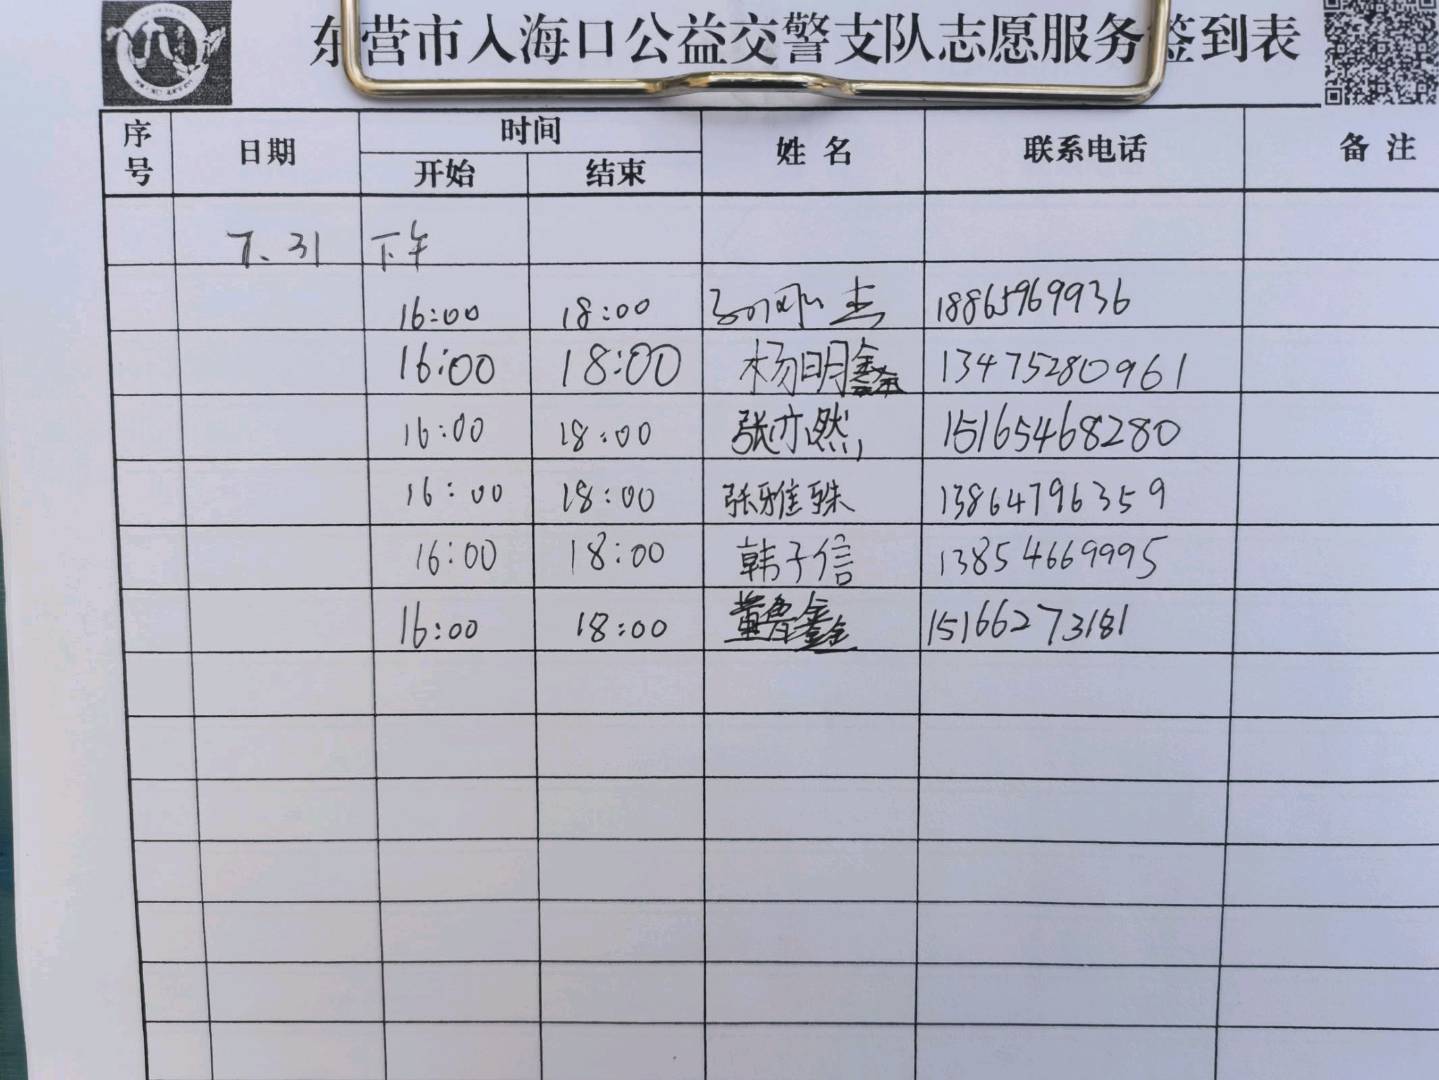 东营市入海口公益交警支队志愿服务签到表
序号 日期 时间 姓名 联系电话 备注
开始 结束
7.31 下午
16:00 18:00 18865969936
16:00 18:00 杨明鑫 13475280961
16:00 18:00 张亦然 15165468280
16:00 18:00 张雅姝 13864796359
16:00 18:00 韩子信 13854669995
16:00 18:00 黄鲁鑫 15166273181